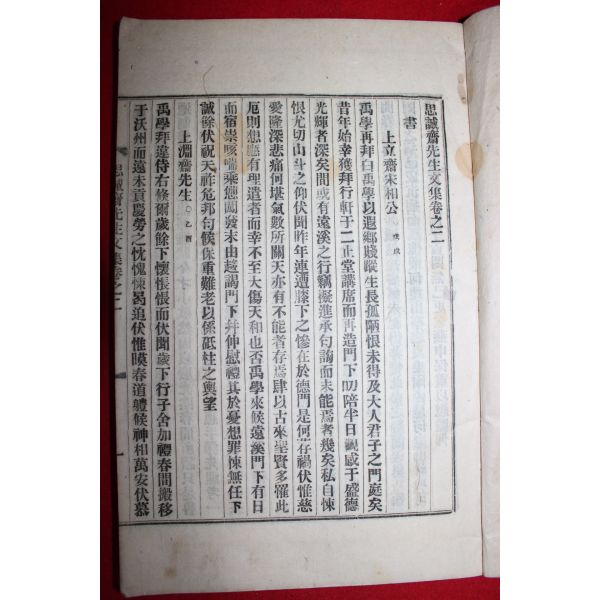 思誠齋先生文集卷之二
書
上立齋宋相公 戊戌
禹學再拜白禹學以遐鄉賤蹤生長孤陋恨未得及大人君子之門庭矣
昔年始幸獲拜行軒于二正堂講席而再造門下叨陪半日觀感于盛德
光輝者深矣間或有遠溪之行竊擬進承勻誨而未能焉者幾矣私自悚
恨尤切山斗之仰伏聞昨年連遭膝下之慘在於德門是何荐禍伏惟慈
愛隆深悲痛何堪氣數所關天亦有不能者存焉肆以古來聖賢多罹此
厄則想應有理遣者而幸不至大傷天和也否禹學來候遠溪門下有日
而宿祟咳喘乘憊闖發末由趍謁門下幷伸慰禮其於憂想罪悚無任下
誠餘伏祝天祚危邦勻候保重難老以係砥柱之輿望
上淵齋先生 ○乙酉
禹學拜違侍右條爾歲餘下懷悵悵而伏聞歲下行子舍加禮春間搬移
于沃州而遠未貢慶勞之忱愧悚曷追伏惟暯春道軆候神相萬安伏慕
思誠齋先生文集卷之二
一